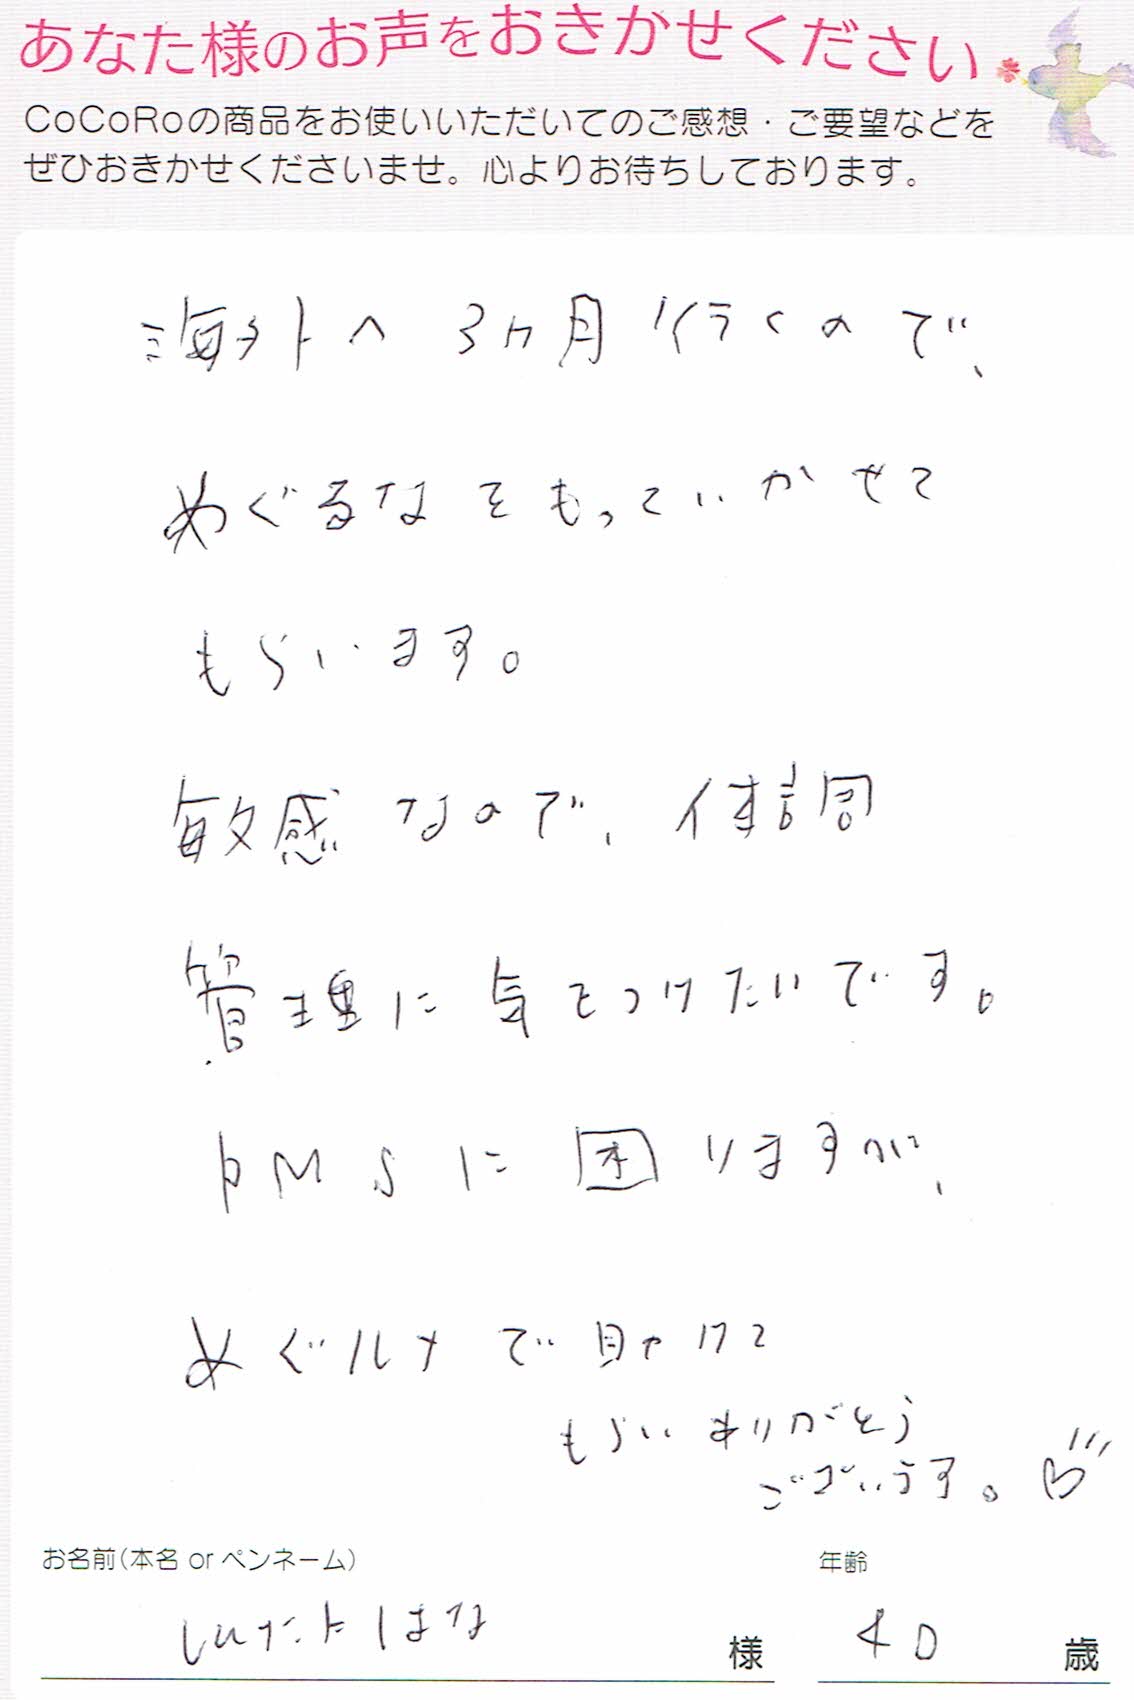 あなた様のお声をおきかせください
CoCoRoの商品をお使いいただいてのご感想・ご要望などを
ぜひおきかせくださいませ。心よりお待ちしております。
海外へ3ヵ月行くので、
めぐるなをもっていかせて
もらいます。
敏感なので、体調
管理に気をつけたいです。
PMSに困りますが、
めぐルナで助けて
もらいありがとう
ございます。
お名前(本名 or ペンネーム)
様
年齢
40
歳